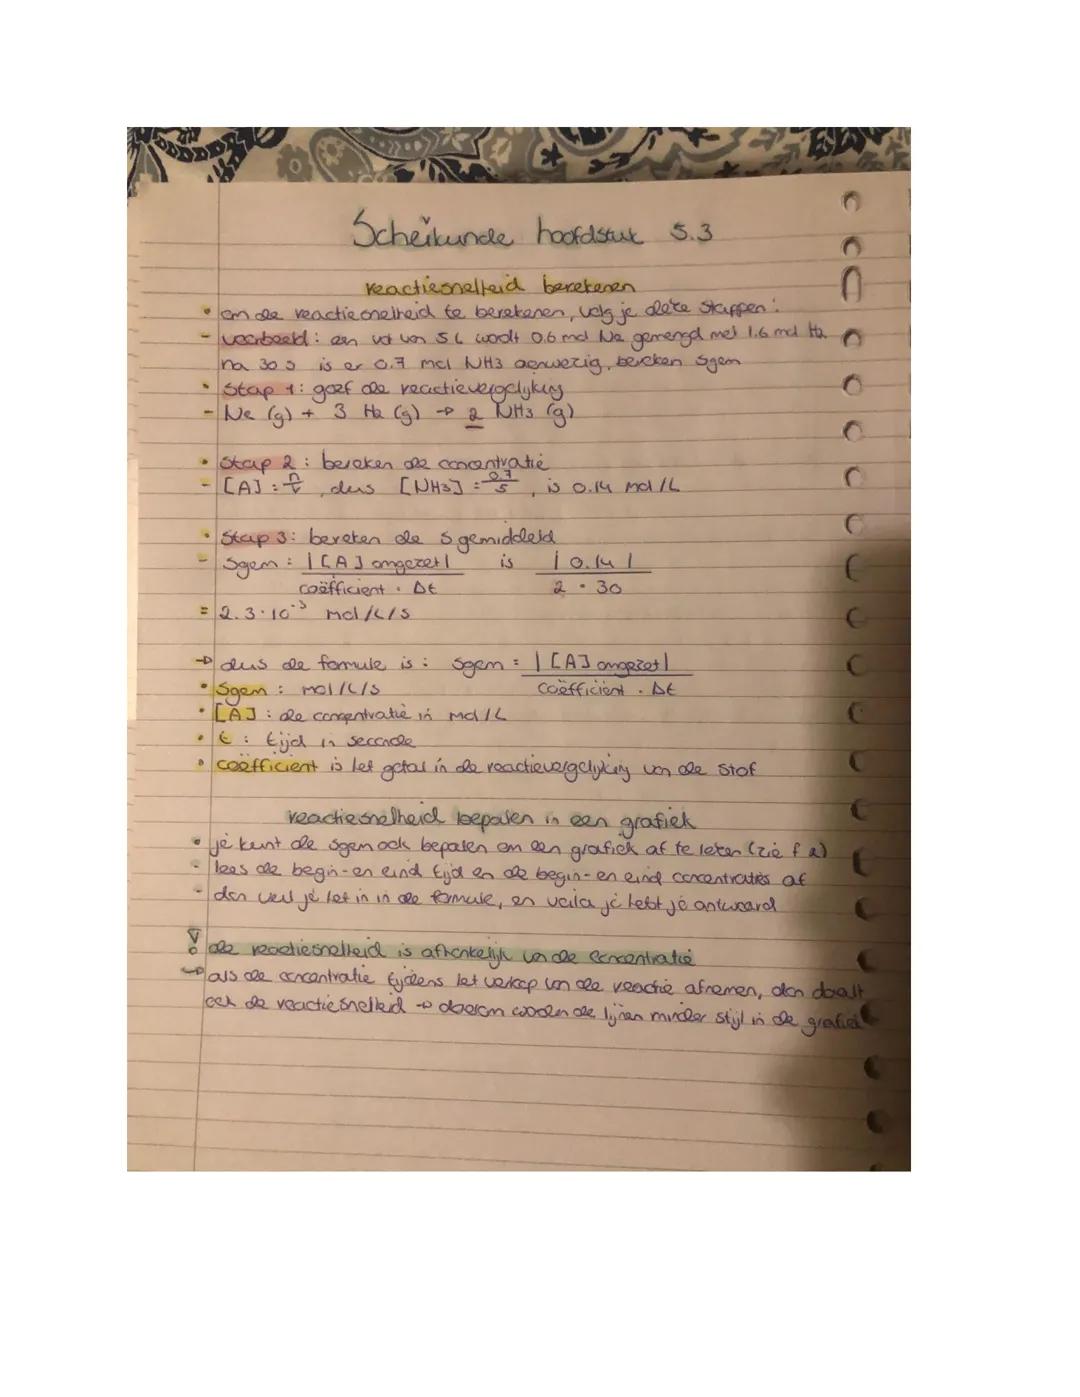 Scheikunde hoofdstuk 5.3
reactiesnelheid berekenen
• om de reactiesnelheid te berekenen, volg je deze stappen:
- voorbeeld: een vat van 5 L wordt 0.6 mol N2 gemengd met 1.6 mol H2
na 30 s is er 0.7 mol NH3 aanwezig, bereken sgem
• Stap 1: geef de reactievergelijking
- N2 (g) + 3 H2 (g) → 2 NH3 (g)
• Stap 2: bereken de concentratie
- [A] = n/v, dus [NH3] = 0.7/5, is 0.14 mol/L
• Stap 3: bereken de s gemiddeld
- Sgem = |[A] omgezet| is |0.14|
coëfficient . Δt 2 . 30
= 2.3 · 10⁻³ mol/L/s
→ dus de formule is: sgem = |[A] omgezet|
coëfficient . Δt
• Sgem : mol/L/s
• [A] : de concentratie in mol/L
• t : tijd in seconde
• coëfficient is het getal in de reactievergelijking van de stof
reactiesnelheid bepalen in een grafiek
• je kunt de sgem ook bepalen om een grafiek af te lezen (zie f 2)
- lees de begin- en eind tijd en de begin- en eind concentraties af
- dan vul je het in in de formule, en voila je hebt je antwoord
! de reactiesnelheid is afhankelijk van de concentratie
→ als de concentratie tijdens het verloop van de reactie afnemen, dan daalt
ook de reactiesnelheid → daarom worden de lijnen minder stijl in de grafiek